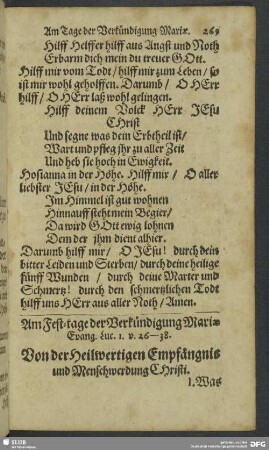 Am Tage der Verkündigung Mariæ. 269
Hilff Helffer hilff aus Angst und Noth
Erbarm dich mein du treuer GOtt.
Hilff mir vom Todt/ hilff mir zum Leben/ so
ist mir wohl geholffen. Darumb/ O HErr
hilff/ O HErr laß wohl gelingen.
Hilff deinem Volck HErr JEsu
CHrist
Und segne was dein Erbtheil ist/
Wart und pfleg ihr zu aller Zeit
Und heb sie hoch in Ewigkeit.
Hosianna in der Höhe. Hilff mir/ O aller
liebster JEsu/ in der Höhe.
Im Himmel ist gut wohnen
Hinnauff steht mein Begier/
Da wird GOtt ewig lohnen
Dem der jhm dient alhier.
Darumb hilff mir/ O JEsu! durch dein
bitter Leiden und Sterben/ durch deine heilige
fünff Wunden/ durch deine Marter und
Schmertz! durch den schmertzlichen Todt
hilff uns HErr aus aller Noth/ Amen.
Am Fest-tage der Verkündigung Mariæ
Evang. Luc. 1. v. 26—38.
Von der Heilwertigen Empfängnis
und Menschwerdung CHristi.
1. Was
SLUB
DFG